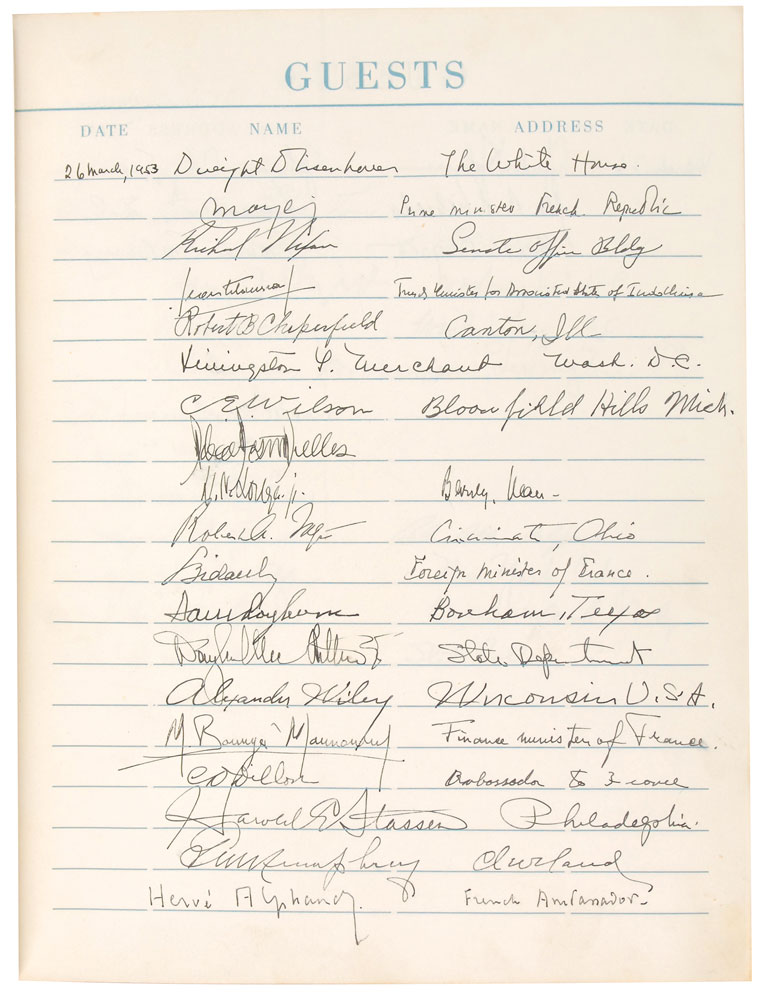 GUESTS
DATE NAME ADDRESS
26 March, 1953 Dwight D Eisenhower The White House.
Mayer Prime minister French Republic
Richard Nixon Senate Office Bldg
for Associated States of Indochina
Robert B Chiperfield Canton, Ill
Livingston T. Merchant Wash. D.C.
C E Wilson Bloomfield Hills Mich.
Dulles
Beverly, Mass -
Robert A. Taft Cincinnati, Ohio
Bidault Foreign minister of France.
Sam Rayburn Bonham, Texas
Douglas State Department
Alexander Wiley Wisconsin U.S.A.
M. Bourgès Maunoury Finance minister of France.
C D Dillon Ambassador to France
Harold E Stassen Philadelphia.
Humphrey Cleveland
Hervé Alphand. French Ambassador-